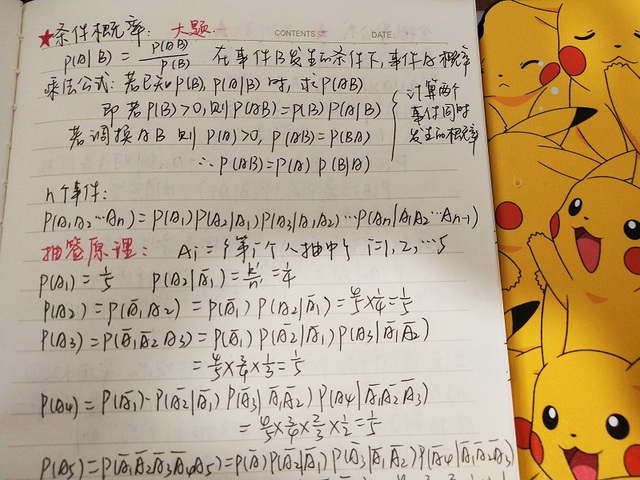 ★条件概率: 大题
CONTENTS DATE:
P(A|B) = P(AB)/P(B) 在事件B发生的条件下,事件A概率
乘法公式: 若已知P(B), P(A|B)时,求P(AB)
即若P(B)>0,则P(AB)=P(B)P(A|B)
若调换AB 则 P(A)>0, P(AB)=P(BA)
∴P(AB)=P(A) P(B|A)
计算两个
事件同时
发生的概率
n个事件:
P(A₁A₂…An)=P(A₁)P(A₂|A₁)P(A₃|A₁A₂)…P(An|A₁A₂…An-1)
抽签原理: Ai={第i个人抽中} i=1,2,…5
P(A₁)=1/5 P(A₂|Ā₁)= =1/4
P(A₂)=P(Ā₁A₂)=P(Ā₁)P(A₂|Ā₁)=4/5×1/4=1/5
P(A₃)=P(Ā₁Ā₂A₃)=P(Ā₁)P(Ā₂|Ā₁)P(A₃|Ā₁Ā₂)
=4/5×3/4×1/3=1/5
P(A₄)=P(Ā₁)·P(Ā₂|Ā₁)P(Ā₃|Ā₁Ā₂)P(A₄|Ā₁Ā₂Ā₃)
=4/5×3/4×2/3×1/2=1/5
P(A₅)=P(Ā₁Ā₂Ā₃Ā₄A₅)=P(Ā)P(Ā₂|Ā₁)P(Ā₃|Ā₁Ā₂)P(Ā₄|Ā₁Ā₂Ā₃)